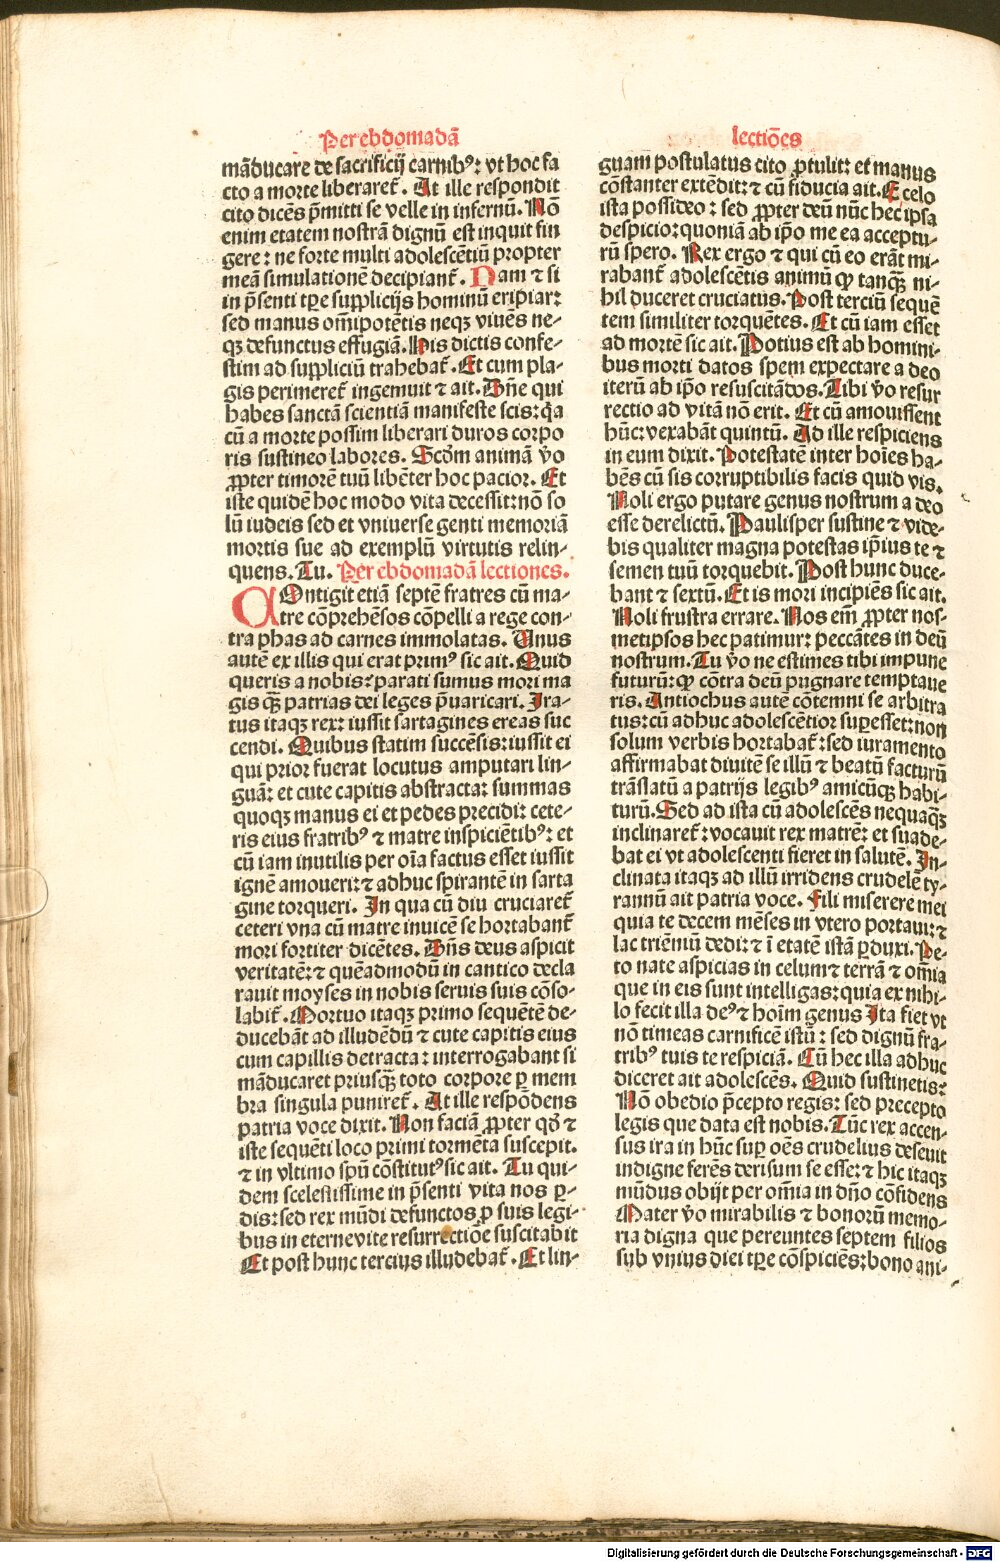 Per ebdomadā
māducare de sacrificij carnibꝰ: vt hoc fa
cto a morte liberaret᷑. At ille respondit
cito dicēs p̄mitti se velle in infernū. Nō
enim etatem nostrā dignū est inquit fin
gere: ne forte multi adolescētiū propter
meā simulationē decipiant᷑. Nam ⁊ si
in p̄senti tp̄e supplicijs hominū eripiar:
sed manus om̄ipotētis neqꝫ viuēs ne-
qꝫ defunctus effugiā. His dictis confe-
stim ad suppliciū trahebat᷑. Et cum pla-
gis perimeret᷑ ingemuit ⁊ ait. Dn̄e qui
habes sanctā scientiā manifeste scis: q̄a
cū a morte possim liberari duros corpo
ris sustineo labores. Scd̄m animā v̄o
ꝓpter timorē tuū libēter hoc pacior. Et
iste quidē hoc modo vita decessit: nō so
lū iudeis sed et vniuerse genti memoriā
mortis sue ad exemplū virtutis relin-
quens. Tu. Per ebdomadā lectiones.
COntigit etiā septē fratres cū ma-
tre cōprehēsos cōpelli a rege con-
tra phas ad carnes immolatas. Unus
autē ex illis qui erat primꝰ sic ait. Quid
queris a nobis? parati sumus mori ma
gis qꝫ̄ patrias dei leges p̄uaricari. Ira-
tus itaqꝫ rex: iussit sartagines ereas suc
cendi. Quibus statim succēsis: iussit ei
qui prior fuerat locutus amputari lin-
guā: et cute capitis abstracta: summas
quoqꝫ manus ei et pedes precidi: cete-
ris eius fratribꝰ ⁊ matre inspiciētibꝰ: et
cū iam inutilis per oīa factus esset iussit
ignē amoueri: ⁊ adhuc spirantē in sarta
gine torqueri. In qua cū diu cruciaret᷑
ceteri vna cū matre inuicē se hortabant᷑
mori fortiter dicētes. Dn̄s deus aspicit
veritatē: ⁊ quēadmodū in cantico decla
rauit moyses in nobis seruis suis cōso-
labit᷑. Mortuo itaqꝫ primo sequētē de-
ducebāt ad illudēdū ⁊ cute capitis eius
cum capillis detracta: interrogabant si
māducaret priusqꝫ̄ toto corpore ꝑ mem
bra singula puniret᷑. At ille respōdens
patria voce dixit. Non faciā ꝓpter qđ ⁊
iste sequēti loco primi tormēta suscepit.
⁊ in vltimo spū cōstitutꝰ sic ait. Tu qui-
dem scelestissime in p̄senti vita nos ꝑ-
dis: sed rex mūdi defunctos ꝓ suis legi-
bus in eterne vite resurrectiōe suscitabit
Et post hunc tercius illudebat᷑. Et lin-
lectiōes
guam postulatus cito ꝓtulit: et manus
cōstanter extēdit: ⁊ cū fiducia ait. E celo
ista possideo: sed ꝓpter deū nūc hec ipsa
despicio: quoniā ab ip̄o me ea acceptu-
rū spero. Rex ergo ⁊ qui cū eo erāt mi-
rabant᷑ adolescētis animū ꝙ tanqꝫ̄ ni-
hil duceret cruciatus. Post terciū sequē
tem similiter torquētes. Et cū iam esset
ad mortē sic ait. Potius est ab homini-
bus morti datos spem expectare a deo
iterū ab ip̄o resuscitādos. Tibi v̄o resur
rectio ad vitā nō erit. Et cū amouissent
hūc: vexabāt quintū. Ad ille respiciens
in eum dixit. Potestatē inter hoīes ha-
bēs cū sis corruptibilis facis quid vis.
Noli ergo putare genus nostrum a deo
esse derelictū. Paulisper sustine ⁊ vide-
bis qualiter magna potestas ip̄ius te ⁊
semen tuū torquebit. Post hunc duce-
bant ⁊ sextū. Et is mori incipiēs sic ait.
Noli frustra errare. Nos em̄ ꝓpter nos-
metipsos hec patimur: peccātes in deū
nostrum. Tu v̄o ne estimes tibi impune
futurū: ꝙ cōtra deū pugnare temptaue
ris. Antiochus autē cōtemni se arbitra
tus: cū adhuc adolescētior suꝑesset: non
solum verbis hortabat᷑: sed iuramento
affirmabat diuitē se illū ⁊ beatū facturū
trāslatū a patrijs legibꝰ amicūqꝫ habi-
turū. Sed ad ista cū adolescēs nequaqꝫ̄
inclinaret᷑: vocauit rex matrē: et suade-
bat ei vt adolescenti fieret in salutē. In-
clinata itaqꝫ ad illū irridens crudelē ty-
rannū ait patria voce. Fili miserere mei
quia te decem mēses in vtero portaui: ⁊
lac triēniū dedi: ⁊ ī etatē istā ꝑduxi. Pe-
to nate aspicias in celum ⁊ terrā ⁊ om̄ia
que in eis sunt intelligas: quia ex nihi-
lo fecit illa deꝰ ⁊ hoīm genus Ita fiet vt
nō timeas carnificē istū: sed dignū fra-
tribꝰ tuis te respiciā. Cū hec illa adhuc
diceret ait adolescēs. Quid sustinetis?
Nō obedio p̄cepto regis: sed precepto
legis que data est nobis. Tūc rex accen-
sus ira in hūc suꝑ oēs crudelius deseuit
indigne ferēs derisum se esse: ⁊ hic itaqꝫ
mūdus obijt per om̄ia in dn̄o cōfidens
Mater v̄o mirabilis ⁊ bonorū memo-
ria digna que pereuntes septem filios
sub vnius diei tp̄e cōspiciēs: bono ani-
Digitalisierung gefördert durch die Deutsche Forschungsgemeinschaft - DFG